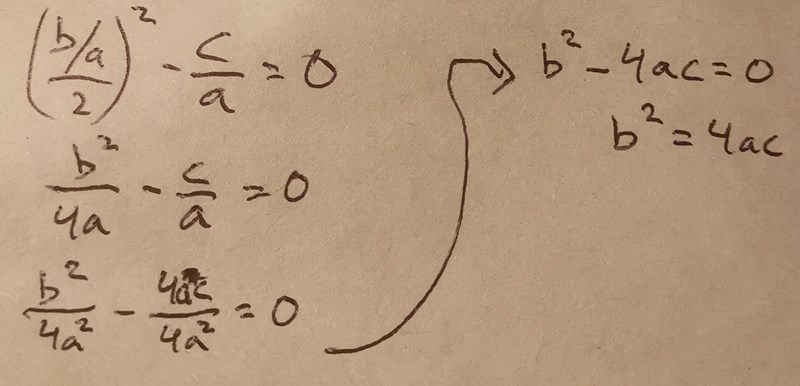 ((b/a)/2)² - c/a = 0
b²/4a - c/a = 0
b²/4a² - 4ac/4a² = 0
→ b² - 4ac = 0
b² = 4ac